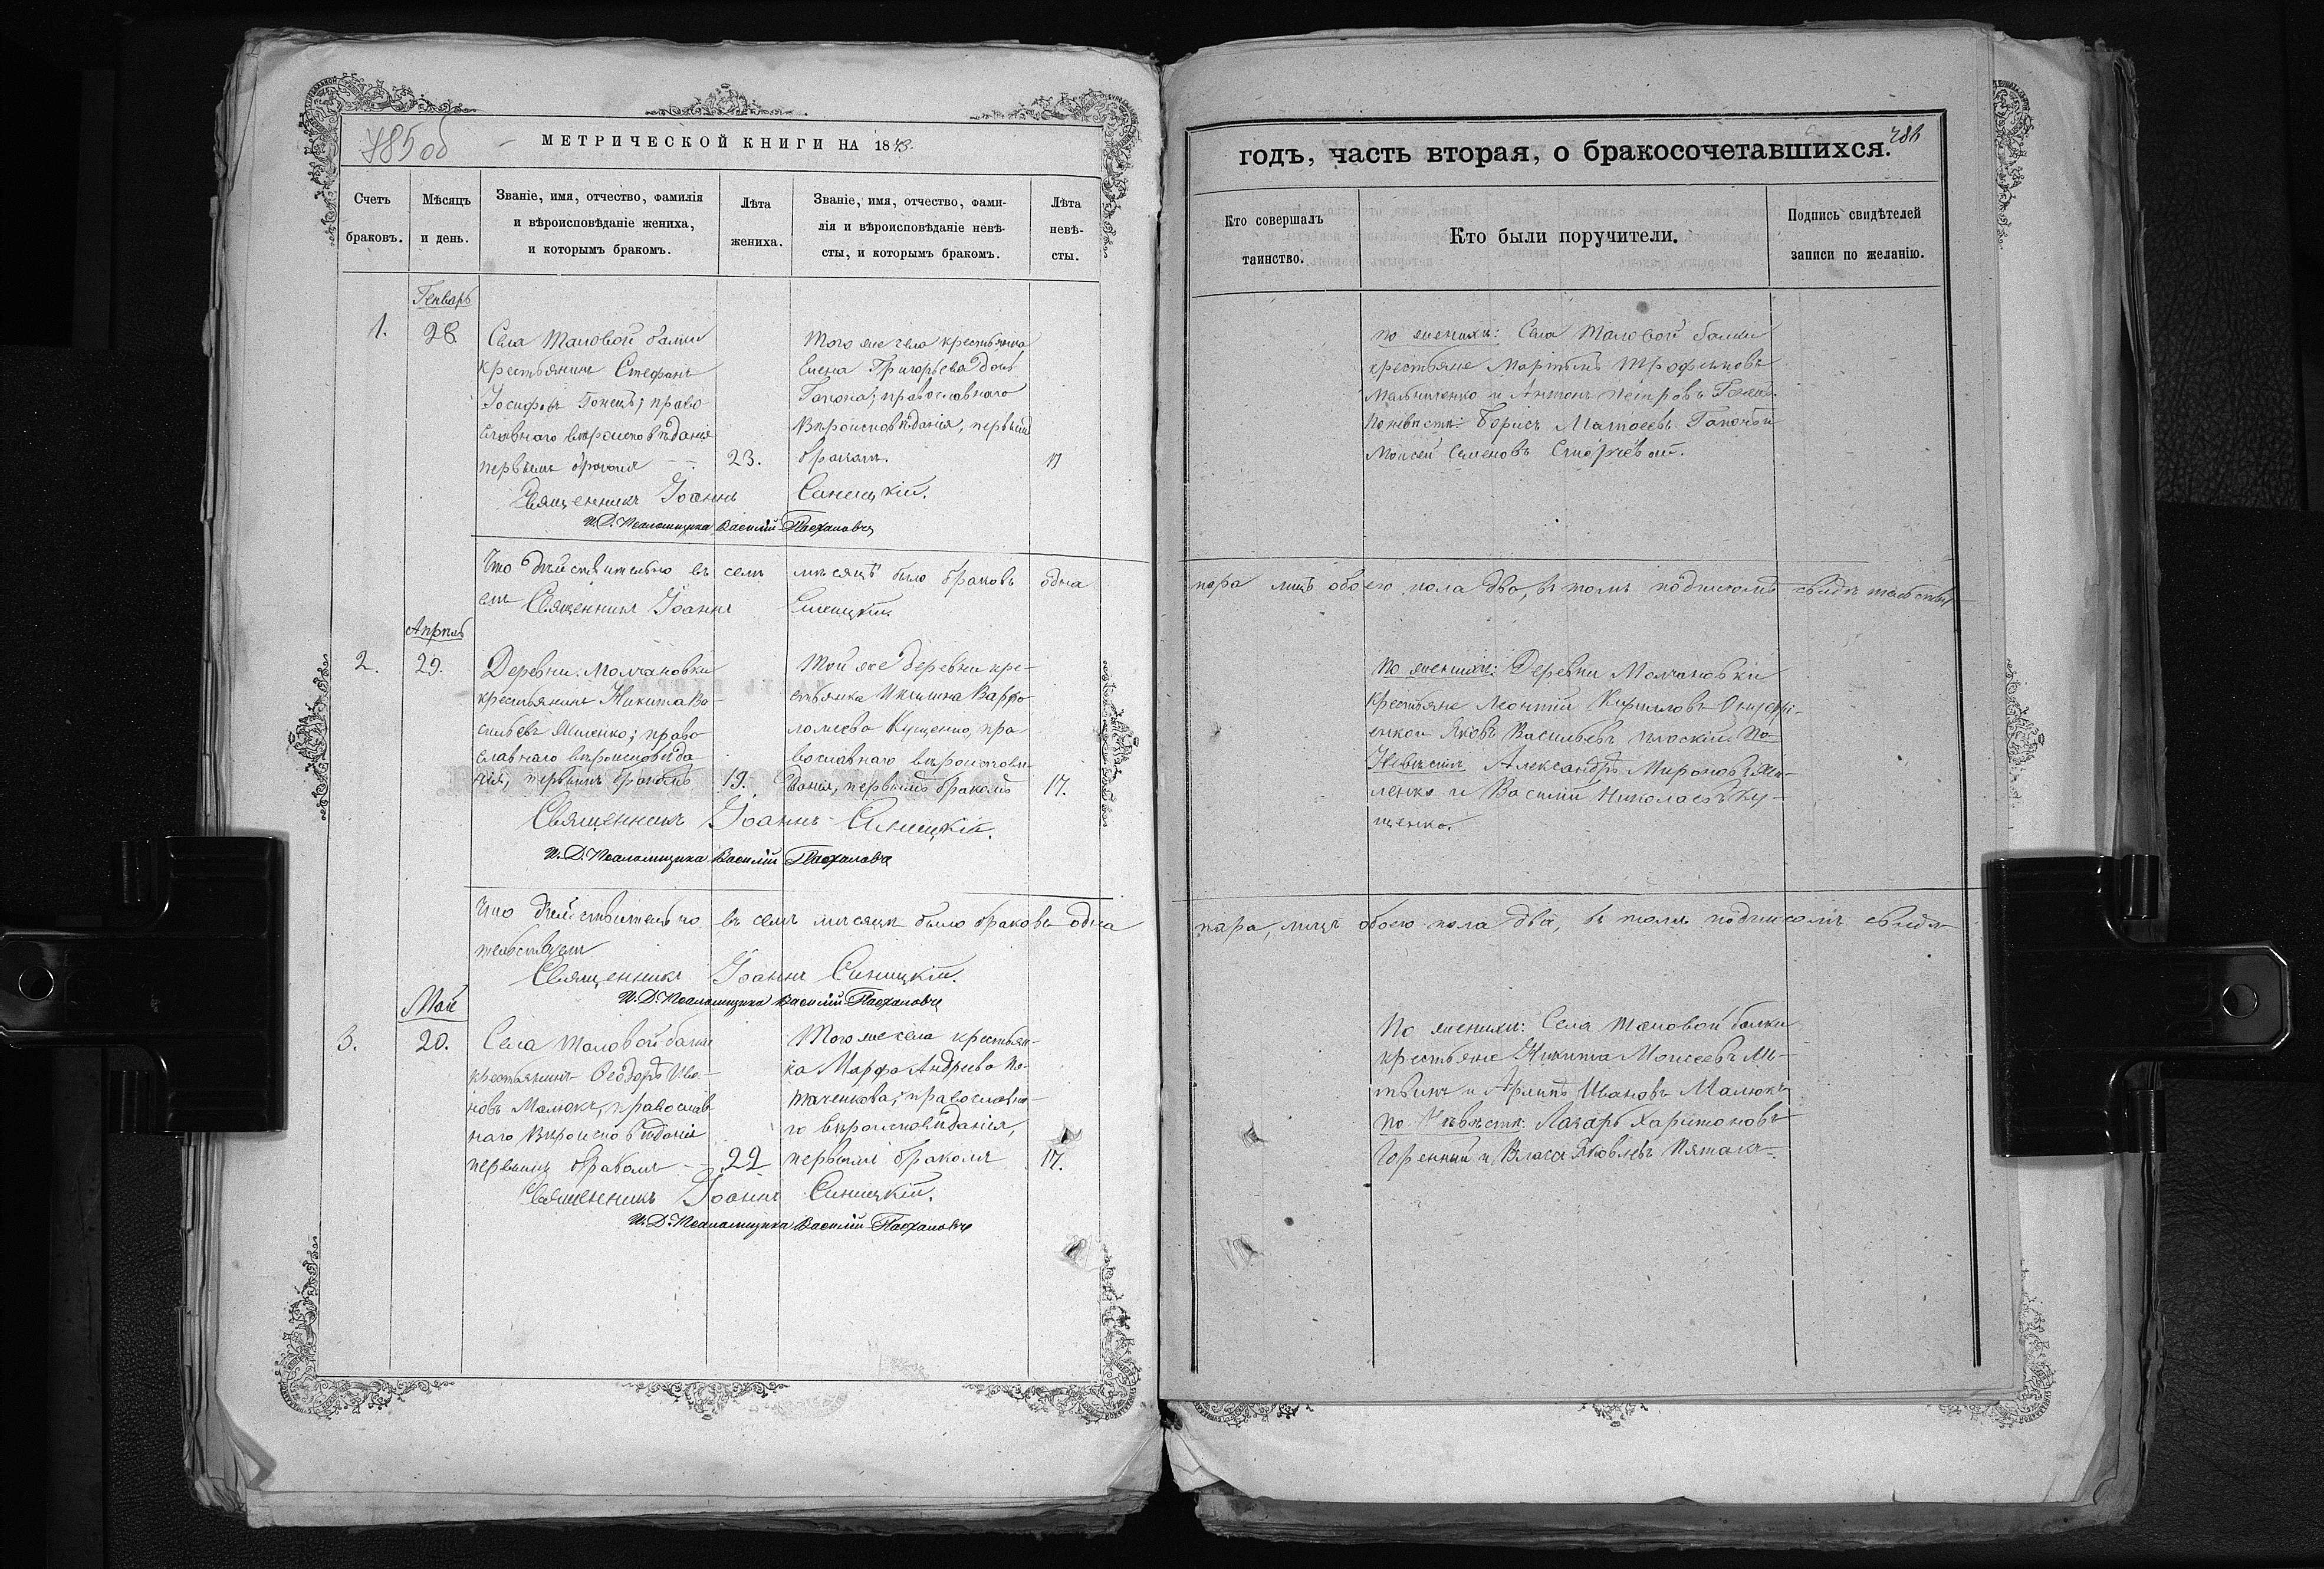 785 об
МЕТРИЧЕСКОЙ КНИГИ НА 1873
Счетъ браковъ.
Мѣсяцъ и день.
Званіе, имя, отчество, фамилія
и вѣроисповѣданіе жениха,
и которымъ бракомъ.
Лѣта жениха.
Званіе, имя, отчество, фами-
лія и вѣроисповѣданіе невѣ-
сты, и которымъ бракомъ.
Лѣта невѣ-
сты.
Генварь
1.
28
Села Таловой балки
крестьянинъ Стефанъ
Іосифовъ Гонецъ; право
славнаго вѣроисповѣданія
первымъ бракомъ
23.
Того же села крестьянка
Елена Григорьева дочь
Гапона; православнаго
вѣроисповѣданія, первымъ
бракомъ.
17
Священникъ Іоаннъ Синицкій.
И.Д. Псаломщика Василій Пасхаловъ
Что дѣйствительно въ семъ мѣсяцѣ было браковъ одна
етъ Священникъ Іоаннъ Синицкій
Апрѣль
2.
29.
Деревни Молчановки
крестьянинъ Никита Ва-
сильевъ Яценко; право
славнаго вѣроисповѣда
нія, первымъ бракомъ
19.
Той же деревни кре-
стьянка Варфо
ломеева Куценко, пра
вославнаго вѣроисповѣ
данія, первымъ бракомъ
17.
Священникъ Іоаннъ Синицкій.
И.Д. Псаломщика Василій Пасхаловъ
Что дѣйствительно въ семъ мѣсяцѣ было браковъ одна
тельствуетъ
Священникъ Іоаннъ Синицкій.
И.Д. Псаломщика Василій Пасхаловъ
Май
3.
20.
Села Таловой балки
крестьянинъ Ѳеодоръ Ива-
новъ Малюкъ, православ
наго вѣроисповѣданія
первымъ бракомъ
22
Того же села крестьян-
ка Марфа Андреева По-
таченкова; православна-
го вѣроисповѣданія,
первымъ бракомъ
17.
Священникъ Іоаннъ Синицкій.
И.Д. Псаломщика Василій Пасхаловъ
годъ, часть вторая, о бракосочетавшихся.
Кто совершалъ
таинство.
Кто были поручители.
Подпись свидѣтелей
записи по желанію.
По женихѣ: Села Таловой балки
крестьяне Мартынъ Трофимовъ
Мальченко и Антонъ Петровъ
По невѣстѣ: Борисъ Матѳеевъ Гапонъ и
Моисей Семеновъ
пара лицъ обоего пола два, въ томъ подписомъ свидѣтельству
По женихѣ: Деревни Молчановки
крестьяне Леонтій Кирилловъ
енко и Яковъ Васильевъ Плоскій. По
Невѣстѣ Александръ Мироновъ
ленко и Василій Николаевъ Ку-
ценко.
пара, лицъ обоего пола два, въ томъ подписомъ свидѣ
По женихѣ: Села Таловой балки
крестьяне Никита Моисеевъ
и Ивановъ Малюкъ
По Невѣстѣ: Лазарь Харитоновъ
Горенный и Власъ Яковлевъ Пятакъ.